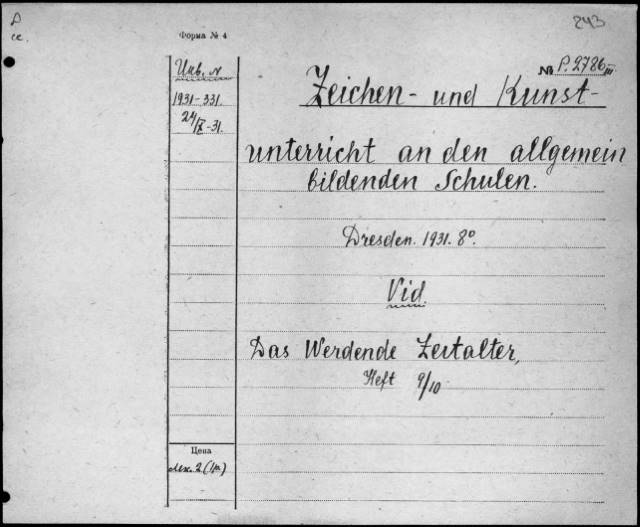 243
Форма № 4
Инв. №
1931-331.
24/IX-31.
№ P.2786 III
Zeichen- und Kunst-
unterricht an den allgemein
bildenden Schulen.
Dresden. 1931. 8°.
Vid.
Das Werdende Zeitalter,
Heft 9/10
Цена
2 (1м)